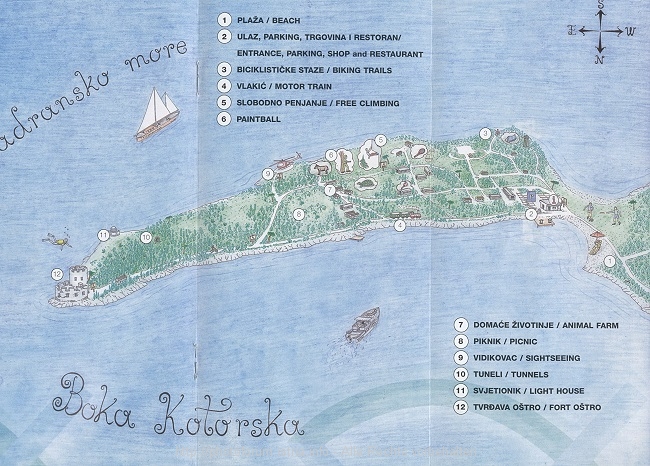 1 PLAŽA / BEACH
2 ULAZ, PARKING, TRGOVINA I RESTORAN/
ENTRANCE, PARKING, SHOP and RESTAURANT
3 BICIKLISTIČKE STAZE / BIKING TRAILS
4 VLAKIĆ / MOTOR TRAIN
5 SLOBODNO PENJANJE / FREE CLIMBING
6 PAINTBALL
S
E W
N
adransko more
3
5
6
9
7
8
4
2
1
11
10
12
7 DOMAĆE ŽIVOTINJE / ANIMAL FARM
8 PIKNIK / PICNIC
9 VIDIKOVAC / SIGHTSEEING
10 TUNELI / TUNNELS
11 SVJETIONIK / LIGHT HOUSE
12 TVRĐAVA OŠTRO / FORT OŠTRO
Boka Kotorska